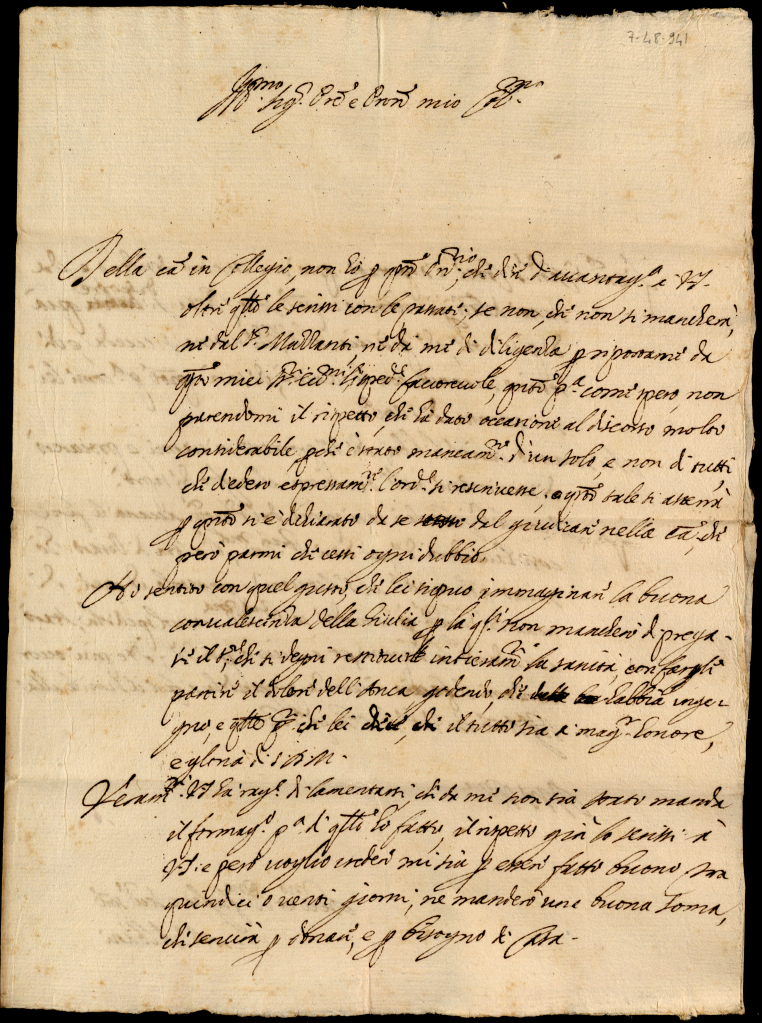 7-48-941
Ill.mo Sig.r P.re e P.ron mio Col.mo
Della cã in Collegio, non hò p
oltre q.llo le scrissi con le passate, se non, che non si mancherà,
ne dal S.r Mazzanti, ne da me di diligenza p riportarne da
q.ti miei favorevole, p.a come spero, non
parendomi il rispetto, che hà dato occasione al discorso molto
considerabile, p che è stato mancam.to d'un solo, e non di tutti,
che diedero espressam.te l'ord.e si rescrivesse, e tale si asterrà
p si è dichiarato da se dal giudicare nella cã, che
però parmi che cessi ogni dubbio.
Hò sentito con quel gusto, che lei si può immaginare la buona
convalescenza della Giulia p la q.le non mancherò di prega-
re il S.re che si degni restituirle intieram.te la sanità, con fargli
partire il dolore dell'Anca godendo, che habbia inge-
gno, e q.llo p che lei che il tutto sia a mag.r honore,
e gloria di S.D.M.
Veram.te VS hà rag.e di lamentarsi, che da me non sia stato manda
il formag.o p.a di q.llo hò fatto, il rispetto già lo scrissi à
VS: e però voglio creder mi sia p esser fatto buono, tra
quindici o venti giorni, ne manderò una buona soma,
che servirà p donare, e p bisogno di Casa.